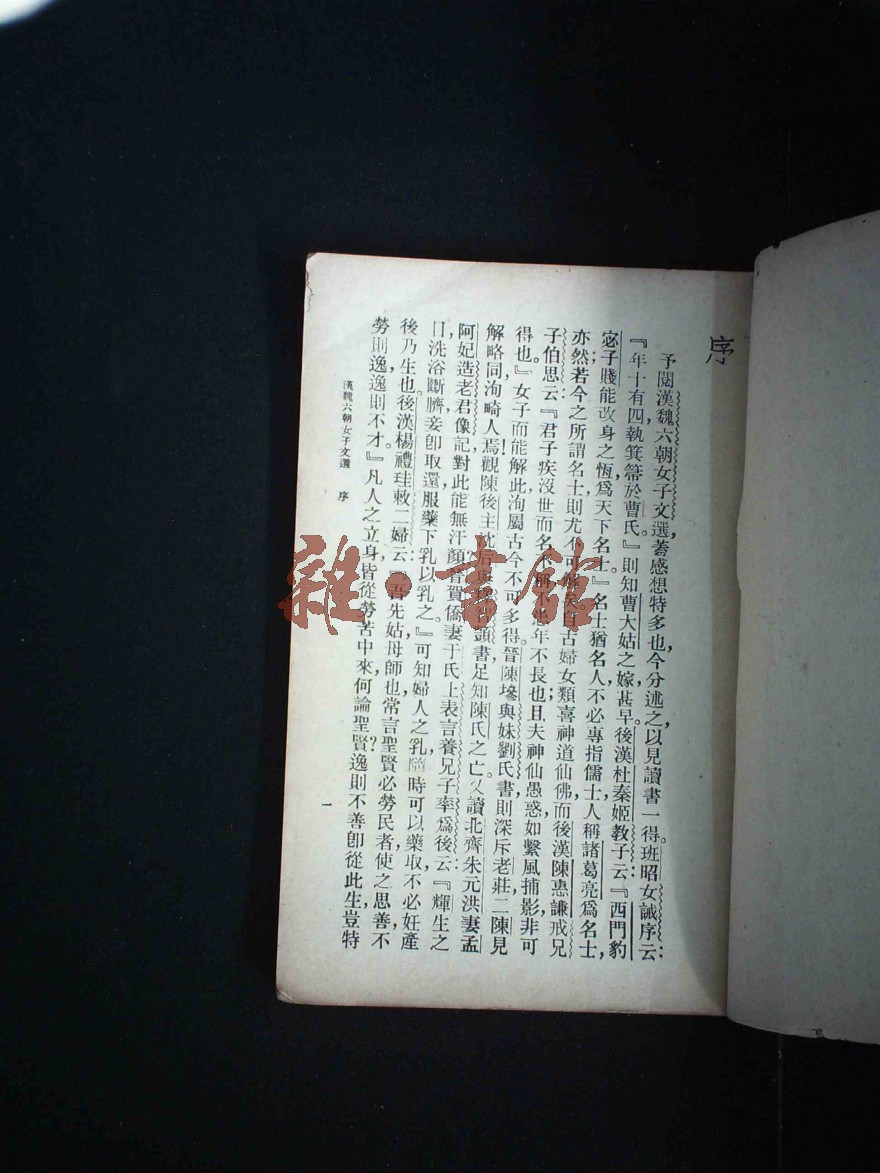 序
予閱漢魏六朝女子文選著感想特多也今分述之以見讀書一得班昭女誡序云：
『年十有四執箕箒於曹氏。』則知曹大姑之嫁甚早。後漢杜秦姬教子云：『西門豹
宓子賤能改身之恆爲天下名士。』名士猶名人不必專指儒士人稱諸葛亮爲名士，
亦然若今之所謂名士則尤不可 自古婦女類喜神道仙佛而後漢陳惠謙戒兄
子伯思云：『君子疾沒世而名不稱不患年不長也且夫神仙愚惑如繫風捕影非可
得也。』女子而能解此洵屬古今不可多得。晉陳㻸與妹劉氏書則深斥老莊，二陳見
解略同洵畸人焉！觀陳後主沈后與 書足知陳氏之亡。又讀北齊朱元洪妻孟
阿妃造老君像記對此能無汗顏晉賀僑妻于氏上表言養兄子率爲後云：『輝生之
日洗浴斷臍妾卽取還服藥下乳以乳之。』可知婦人之乳隨時可以藥取不必妊產
後乃生也。後漢楊禮珪敕二婦云：『吾先姑母師也常言聖賢必勞民者使之思善不
勞則逸逸則不才。』凡人之立身皆從勞苦中來何論聖賢？逸則不善卽從此生豈特
漢魏六朝女子文選　序
一
雜·書館